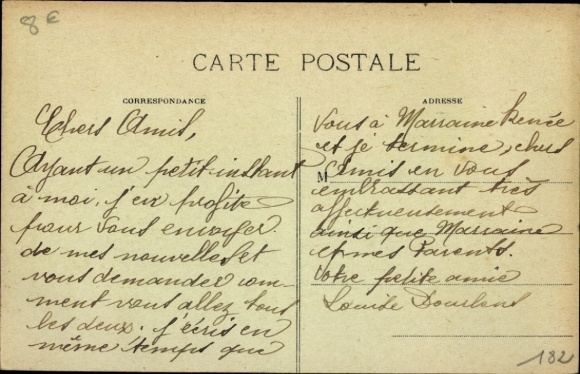 8 €
CARTE POSTALE
CORRESPONDANCE
Chers Amis,
Ayant un petit instant
à moi, j'en profite
pour vous envoyer
de mes nouvelles et
vous demander com-
ment vous allez tous
les deux. j'écris en
même temps que
ADRESSE
vous à Marraine Renée
et je termine, chers
M Amis en vous
embrassant très
affectueusement
ainsi que Marraine
et mes Parents.
Votre petite amie
Louise
182